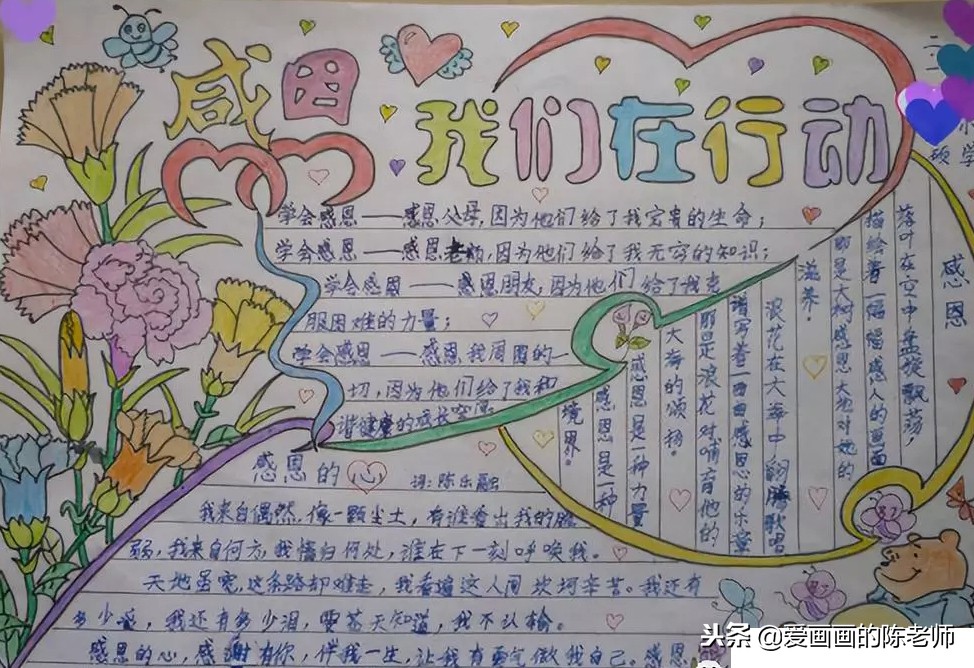 感恩
我们在行动
学会感恩——感恩父母,因为他们给了我宝贵的生命;
学会感恩——感恩老师,因为他们给了我无穷的知识;
学会感恩——感恩朋友,因为他们给了我克
服困难的力量;
学会感恩——感恩我周围的一
切,因为他们给了我和
谐健康的成长空间。
感恩
落叶在空中盘旋飘荡,
描绘着一幅幅感人的画面
那是大树感恩大地对她的
滋养。
浪花在大海中翻腾歌唱
谱写着一曲曲感恩的乐章
那是浪花对哺育他的
大海的颂扬。
感恩是一种力量
感恩是一种
境界。
感恩的心
词:陈乐融
我来自偶然,像一颗尘土,有谁看出我的脆
弱,我来自何方,我情归何处,谁在下一刻呼唤我。
天地虽宽,这条路却难走,我看遍这人间坎坷辛苦。我还有
多少爱,我还有多少泪,要苍天知道,我不认输。
感恩的心,感谢有你,伴我一生,让我有勇气做我自己。感恩
头条@爱画画的陈老师